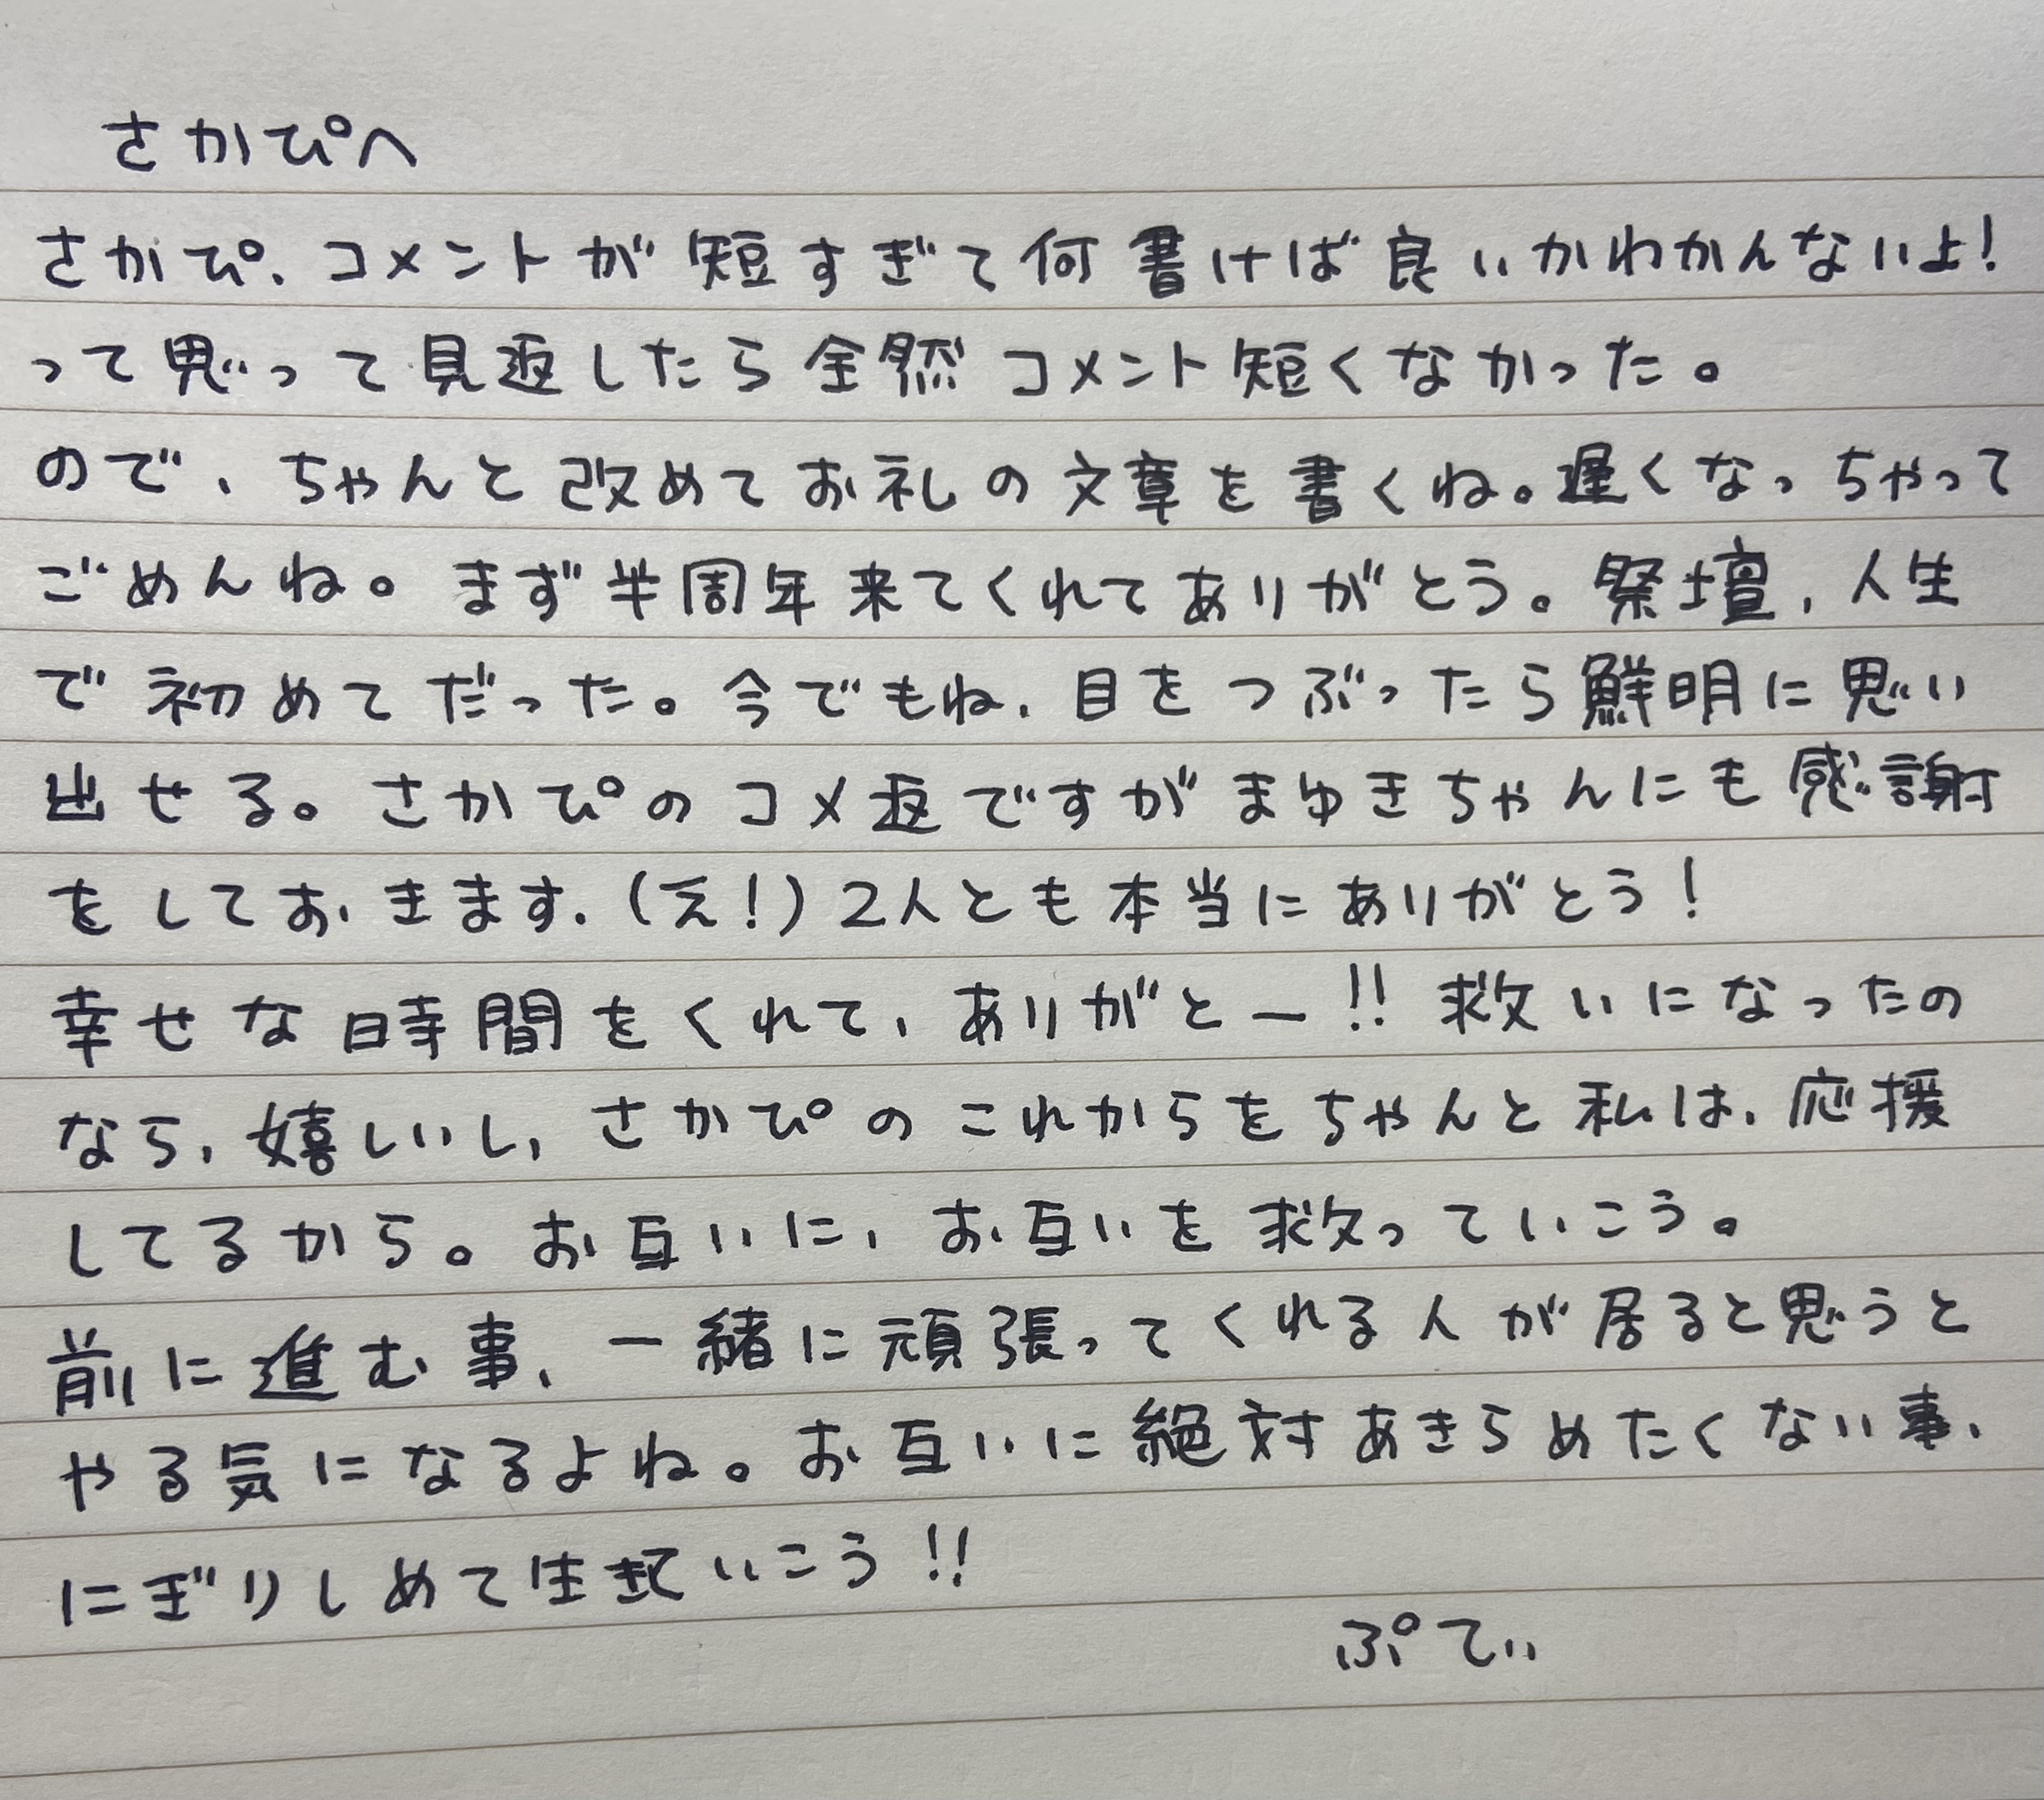 さかぴへ
さかぴ、コメントが短すぎて何書けば良いかわかんないよ!
って思って見返したら全然コメント短くなかった。
ので、ちゃんと改めてお礼の文章を書くね。遅くなっちゃって
ごめんね。まず半周年来てくれてありがとう。祭壇、人生
で初めてだった。今でもね、目をつぶったら鮮明に思い
出せる。さかぴのコメ返ですがまゆきちゃんにも感謝
をしておきます。(え!)2人とも本当にありがとう!
幸せな時間をくれて、ありがとー!!救いになったの
なら、嬉しいし、さかぴのこれからをちゃんと私は、応援
してるから。お互いに、お互いを救っていこう。
前に進む事、一緒に頑張ってくれる人が居ると思うと
やる気になるよね。お互いに絶対あきらめたくない事、
にぎりしめて生きていこう!!
ぷてぃ